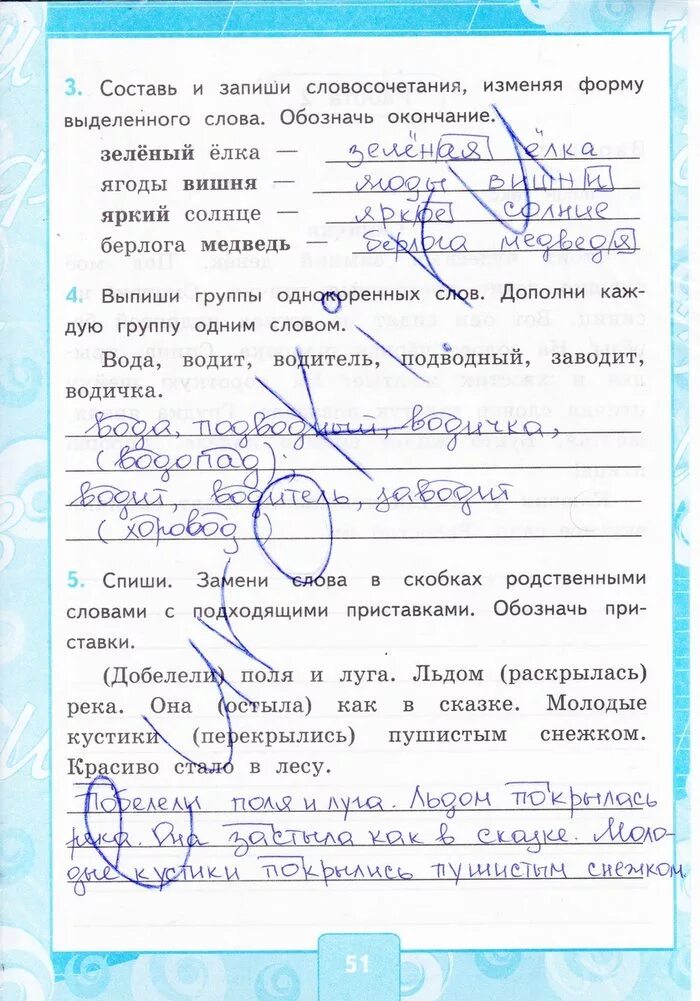 3. Составь и запиши словосочетания, изменяя форму
выделенного слова. Обозначь окончание.
зелёный ёлка — зелёная ёлка
ягоды вишня — ягоды вишни
яркий солнце — яркое солнце
берлога медведь — берлога медведя
4. Выпиши группы однокоренных слов. Дополни каж-
дую группу одним словом.
Вода, водит, водитель, подводный, заводит,
водичка.
вода, подводный, водичка,
(водопад);
водит, водитель, заводит
(хоровод)
5. Спиши. Замени слова в скобках родственными
словами с подходящими приставками. Обозначь при-
ставки.
(Добелели) поля и луга. Льдом (раскрылась)
река. Она (остыла) как в сказке. Молодые
кустики (перекрылись) пушистым снежком.
Красиво стало в лесу.
Побелели поля и луга. Льдом покрылась
река. Она застыла как в сказке. Моло-
дые кустики покрылись пушистым снежком.
51